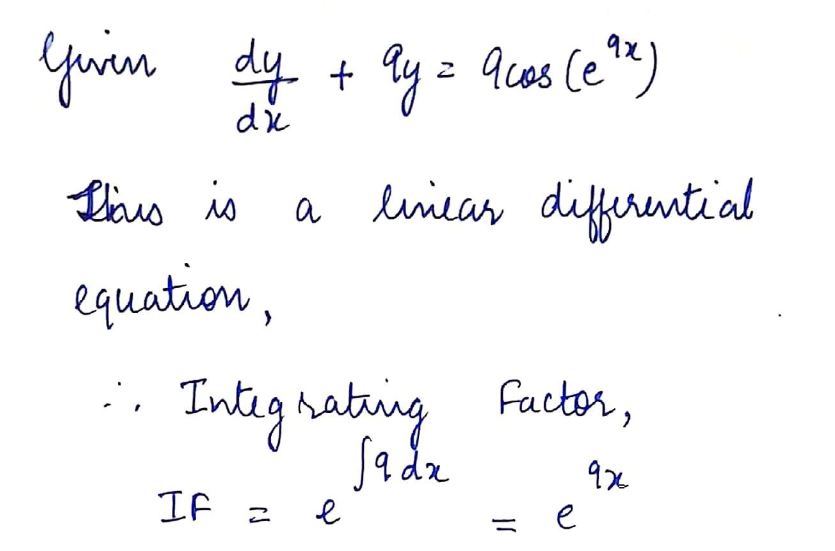 Given dy/dx + 9y = 9cos(e^9x)
This is a linear differential
equation,
∴ Integrating Factor,
IF = e^∫9dx = e^9x